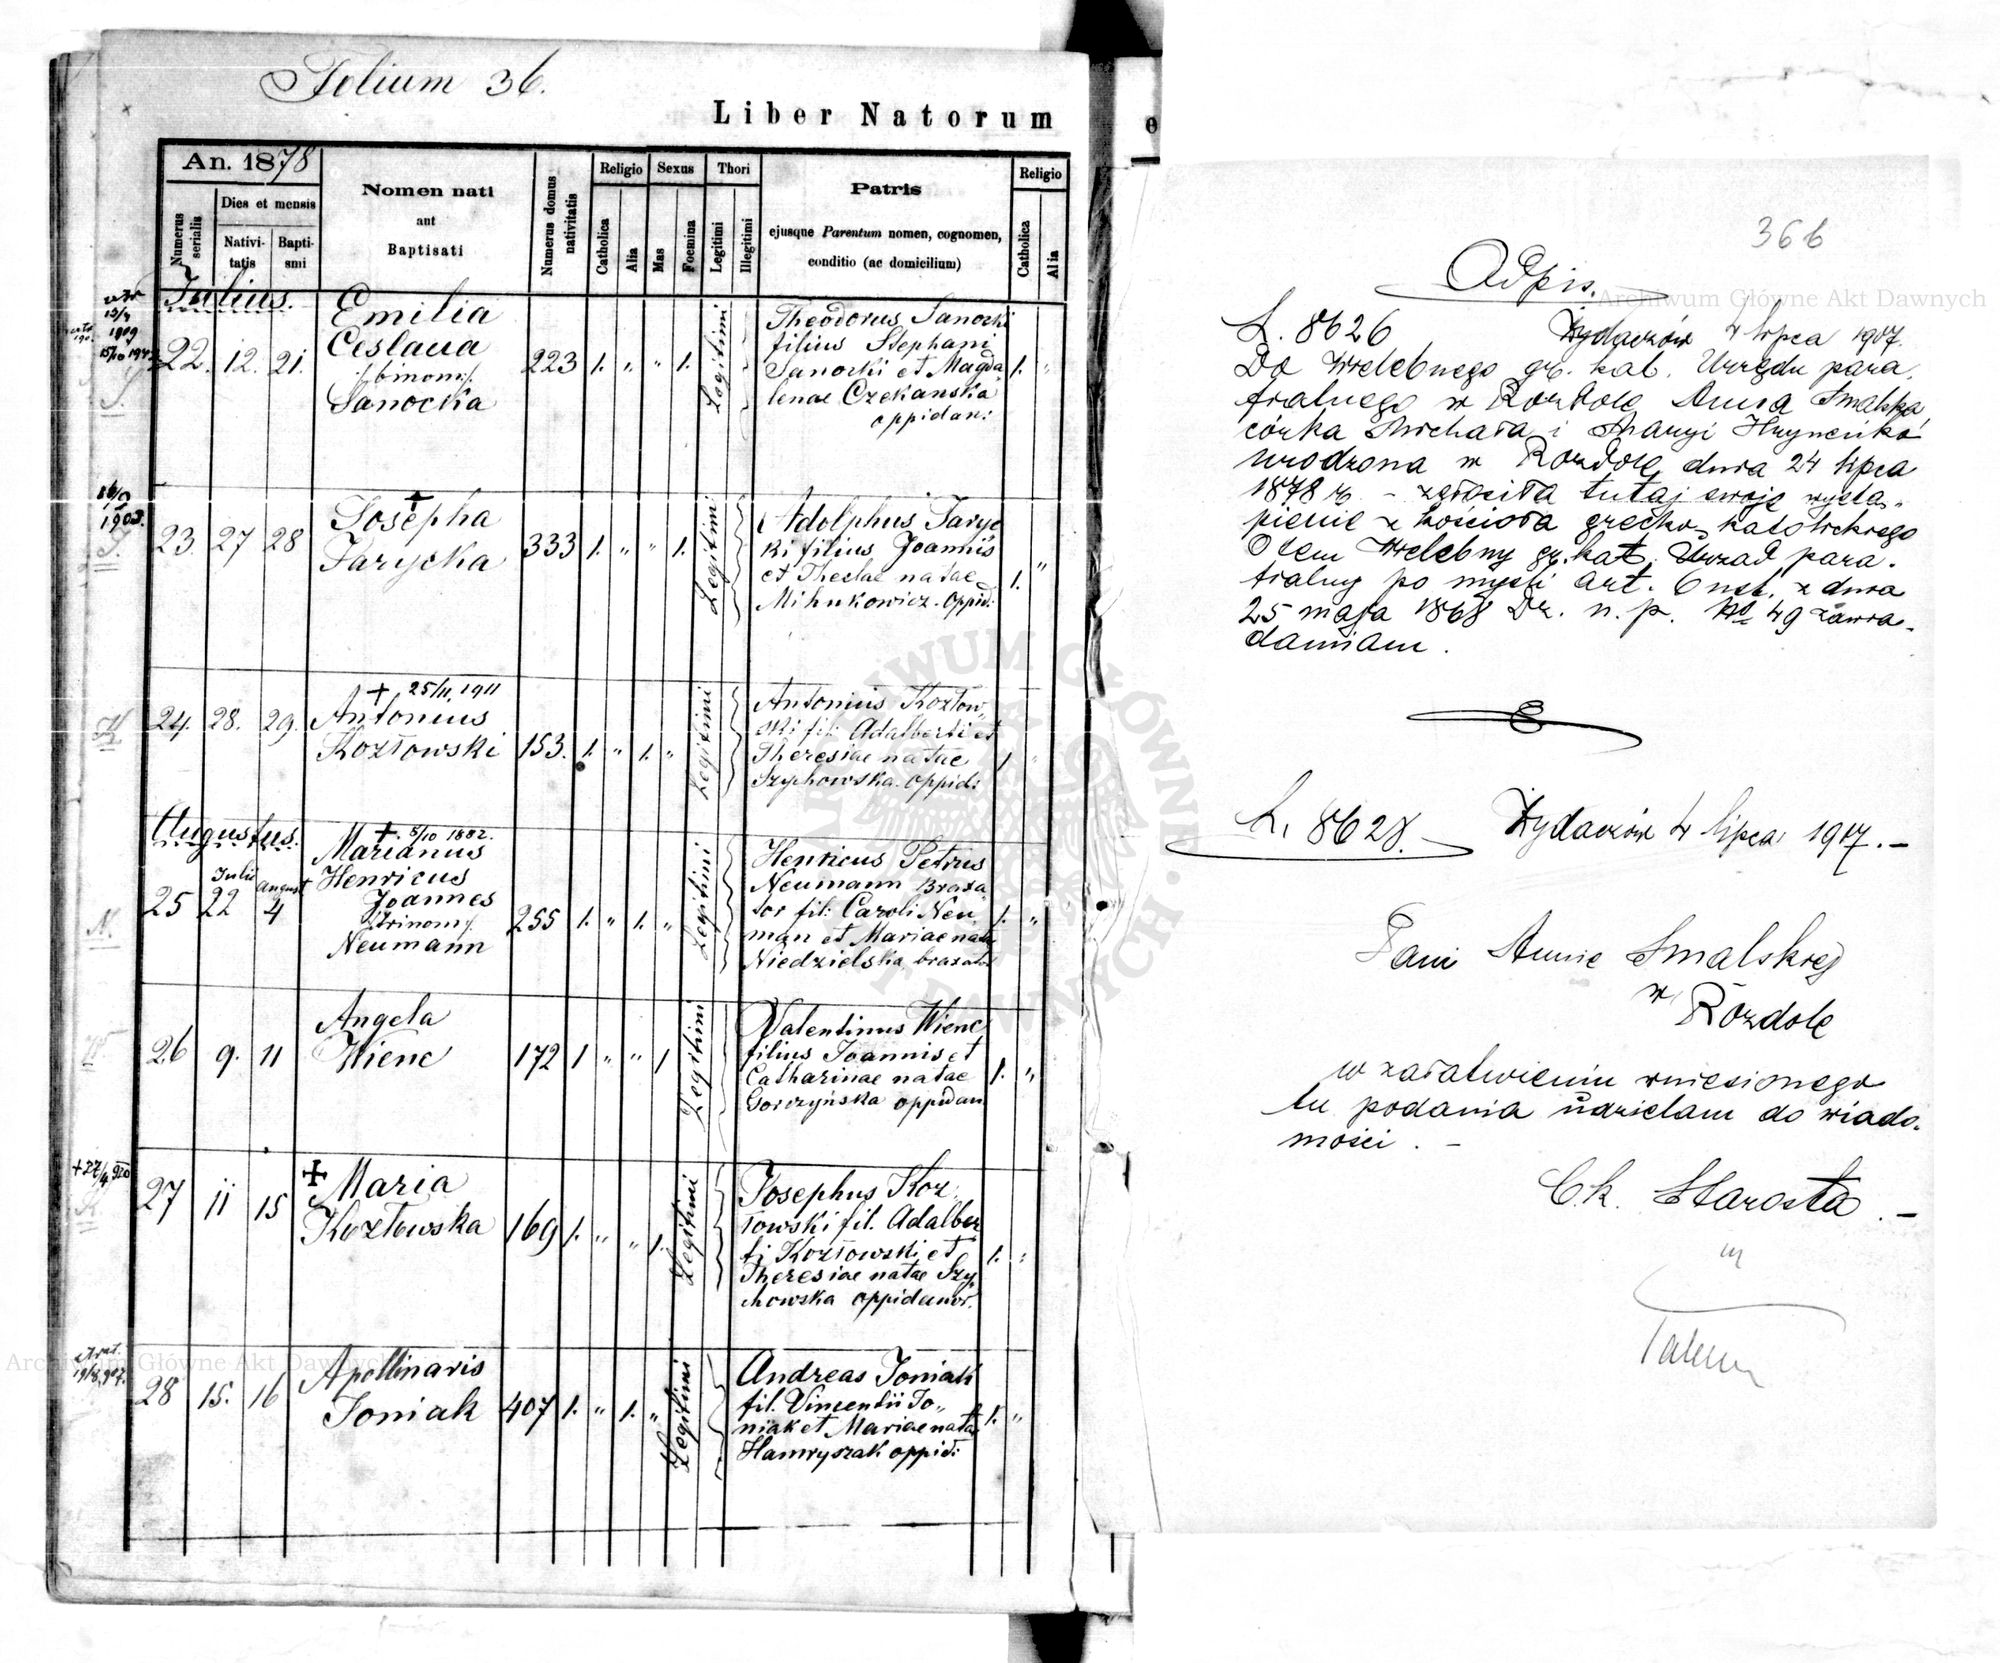 Folium 36.
Liber Natorum
An. 1878
Numerus serialis
Dies et mensis
Nativi-
tatis
Bapti-
smi
Nomen nati
ant
Baptisati
Numerus domus nativitatis
Religio
Catholica
Alia
Sexus
Mas
Foemina
Thori
Legitimi
Illegitimi
Patris
ejusque Parentum nomen, cognomen,
conditio (ac domicilium)
Religio
Catholica
Alia
Julius.
22. 12. 21.
Emilia
Ceslaua
/:binom:/
Sanocka
223 1. " " 1.
Legitimi
Theodorus Sanocki
filius Stephani
Sanocki et Magda
lenae Czekanska
oppidan:
1. "
16/9
1903.
J.
23. 27 28
Josepha
Jarycka
333 1. " " 1.
Legitimi
Adolphus Jaryc
ki filius Joannis
et Theclae natae
Mihukowicz. oppid:
1. "
K
24. 28. 29.
+ 25/11 1911
Antonius
Kozłowski
153. 1. " 1. "
Legitimi
Antonius Kozłow
ski fil: Adalberti et
Theresiae natae
Szyhowska. oppid:
1 "
Augustus.
N.
25 Julii 22 August 4
+ 5/10 1882.
Marianus
Henricus
Joannes
/:trinom:/
Neumann
255 1. " 1. "
Legitimi
Henricus Petrus
Neumann Braxa
tor fil: Caroli Neu
man et Mariae natae
Niedzielska braxator
1. "
W.
26 9. 11
Angela
Wienc
172 1 " " 1
Legitimi
Valentinus Wienc
filius Joannis et
Catharinae natae
Gorczyńska oppidan
1. "
+27/4 920
K.
27 11 15
+ Maria
Kozłowska
169 1. " " 1.
Legitimi
Josephus Koz
łowski fil. Adalber
ti Kozłowski et
Theresiae natae Szy
chowska oppidanor.
1. "
28 15. 16
Apollinaris
Joniak
407 1. " 1. "
Legitimi
Andreas Joniak
fil. Vincentii Jo„
niak et Mariae natae
Hawryszak oppid:
1. "
366
Odpis.
L. 8626 Żydaczów 4 lipca 1907.
Do Wielebnego gr. kat. Urzędu para.
fialnego w Rozdole Anna Smalska
córka Michała i Maryi Hryneńko
urodzona w Rozdole dnia 24 lipca
1878 r. – zgłosiła tutaj swoje wystą„
pienie z kościoła grecko katolickiego
O tem Wielebny gr. kat. Urząd para.
fialny po myśli art. 6 ust. z dnia
25 maja 1868 Dz. n. p. No 49 zawia„
damiam.
L. 8628. Żydaczów 4 lipca 1907. –
Pani Annie Smalskiej
w Rozdole
w załatwieniu wniesionego
tu podania udzielam do wiado.
mości. –
C. k. Starosta. –
Archiwum Główne Akt Dawnych
Archiwum Główne Akt Dawnych
ARCHIWUM GŁÓWNE AKT DAWNYCH